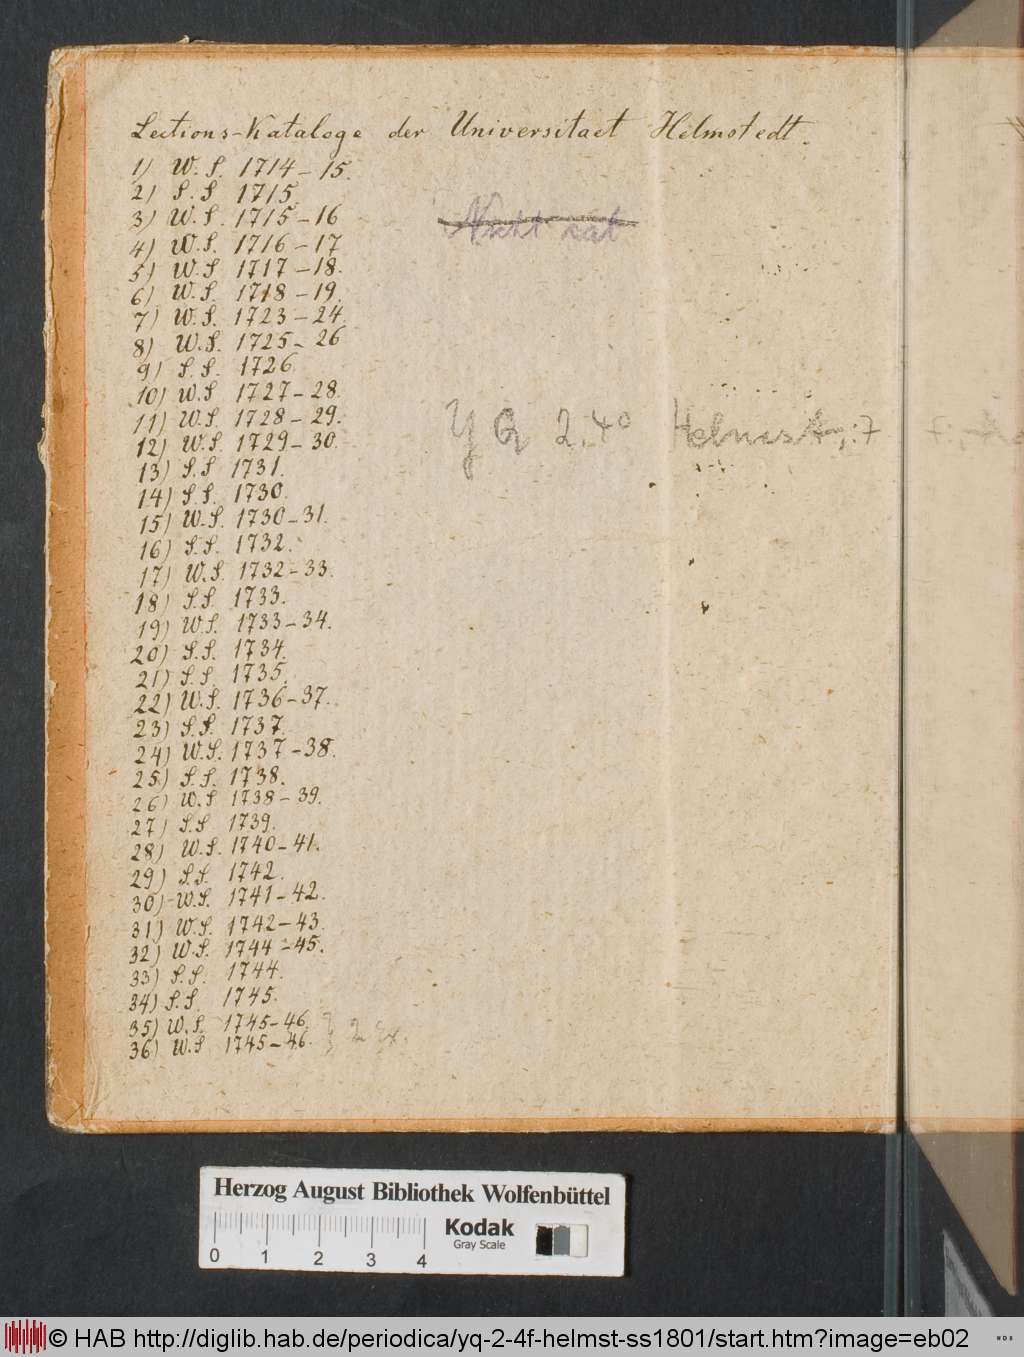 Lections-Kataloge der Universitaet Helmstedt.
1) W. S. 1714-15.
2) S. S 1715.
3) W. S. 1715-16
Nicht kat
4) W. S. 1716-17
5) W. S 1717-18.
6) W. S 1718-19.
7) W. S. 1723-24.
8) W. S. 1725-26
9) S. S. 1726.
10) W. S 1727-28.
11) W. S. 1728-29.
YQ 2.4° Helmst.
12) W. S. 1729-30.
13) S. S 1731.
14) S. S. 1730.
15) W. S. 1730-31.
16) S. S. 1732.
17) W. S. 1732-33.
18) S. S. 1733.
19) W. S. 1733-34.
20) S. S. 1734.
21) S. S. 1735.
22) W. S. 1736-37.
23) S. S. 1737.
24) W. S. 1737-38.
25) S. S. 1738.
26) W. S 1738-39.
27) S. S 1739.
28) W. S. 1740-41.
29) S. S. 1742.
30) W. S. 1741-42.
31) W. S. 1742-43.
32) W. S. 1744-45.
33) S. S. 1744.
34) S. S. 1745.
35) W. S. 1745-46.
36) W. S 1745-46. } 2 Ex.
Herzog August Bibliothek Wolfenbüttel
0 1 2 3 4
Kodak
Gray Scale
© HAB http://diglib.hab.de/periodica/yq-2-4f-helmst-ss1801/start.htm?image=eb02